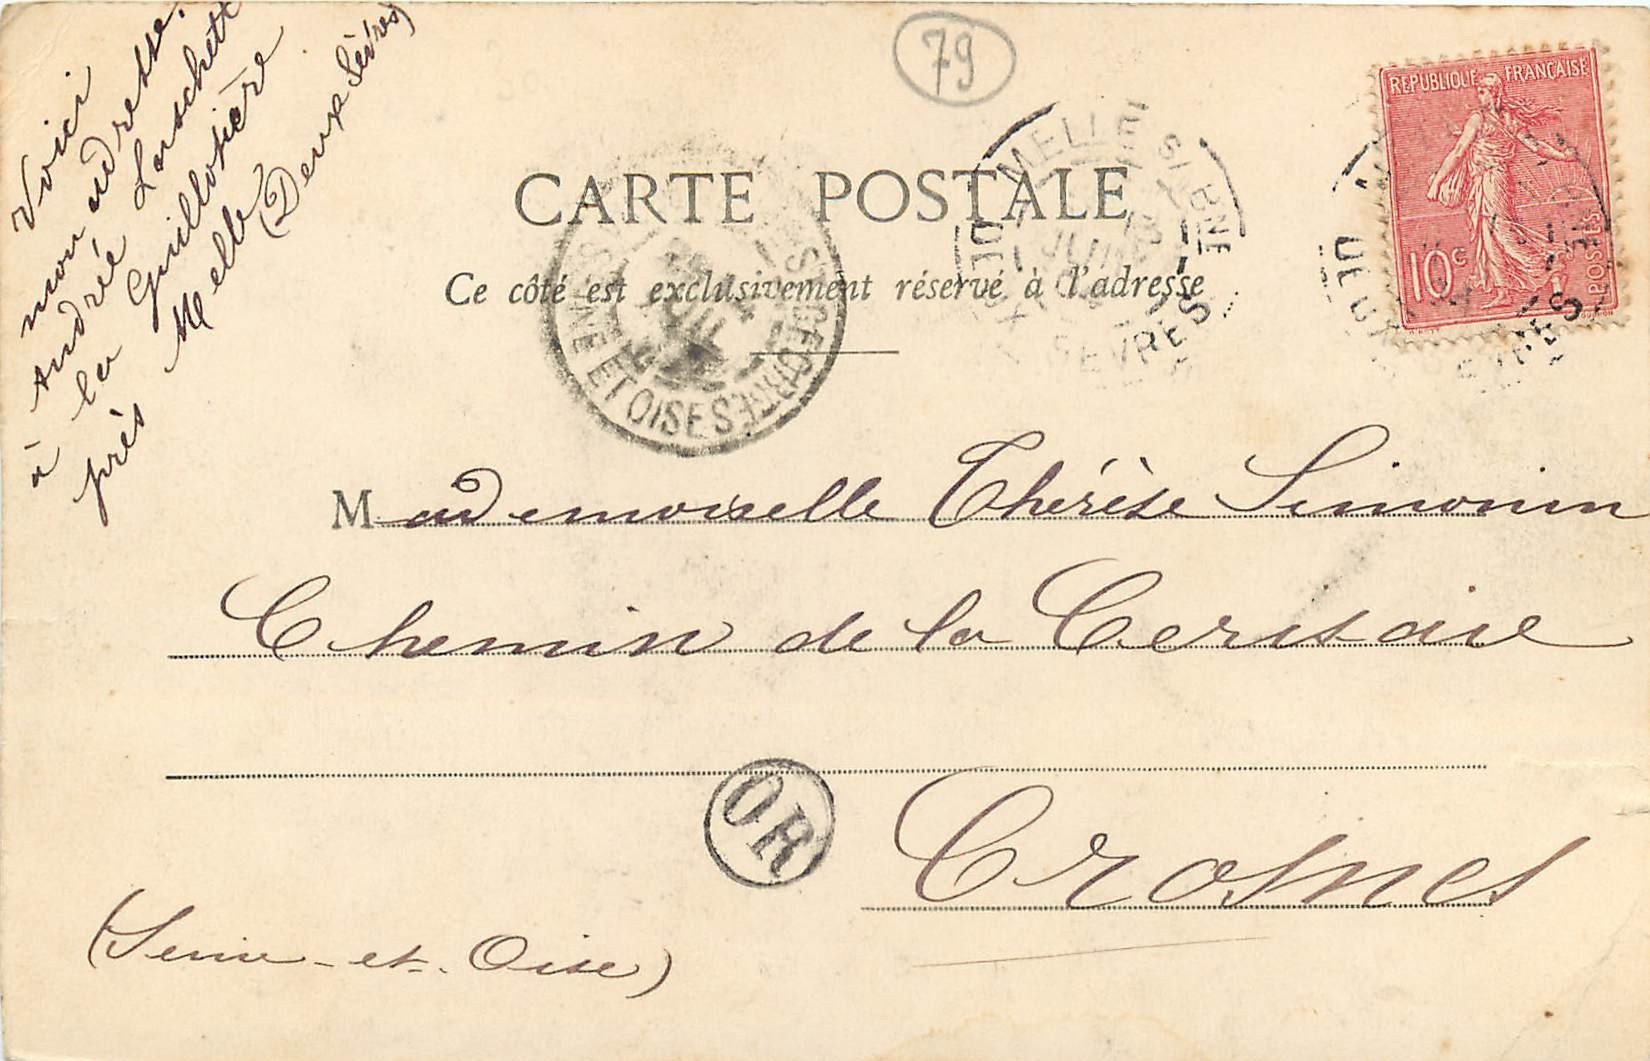 Voici
mon adresse.
Andrée Laschett
à la Guillotière
près Melle
(Deux Sèvres)
79
REPUBLIQUE FRANÇAISE
10c
POSTES
MELLE
JUIL
SEVRES
CARTE POSTALE
Ce côté est exclusivement réservé à l'adresse
SEINE ET OISE
Mademoiselle Thérèse Simonin
Chemin de la Cerisaie
OR
Crosnes
(Seine-et-Oise)